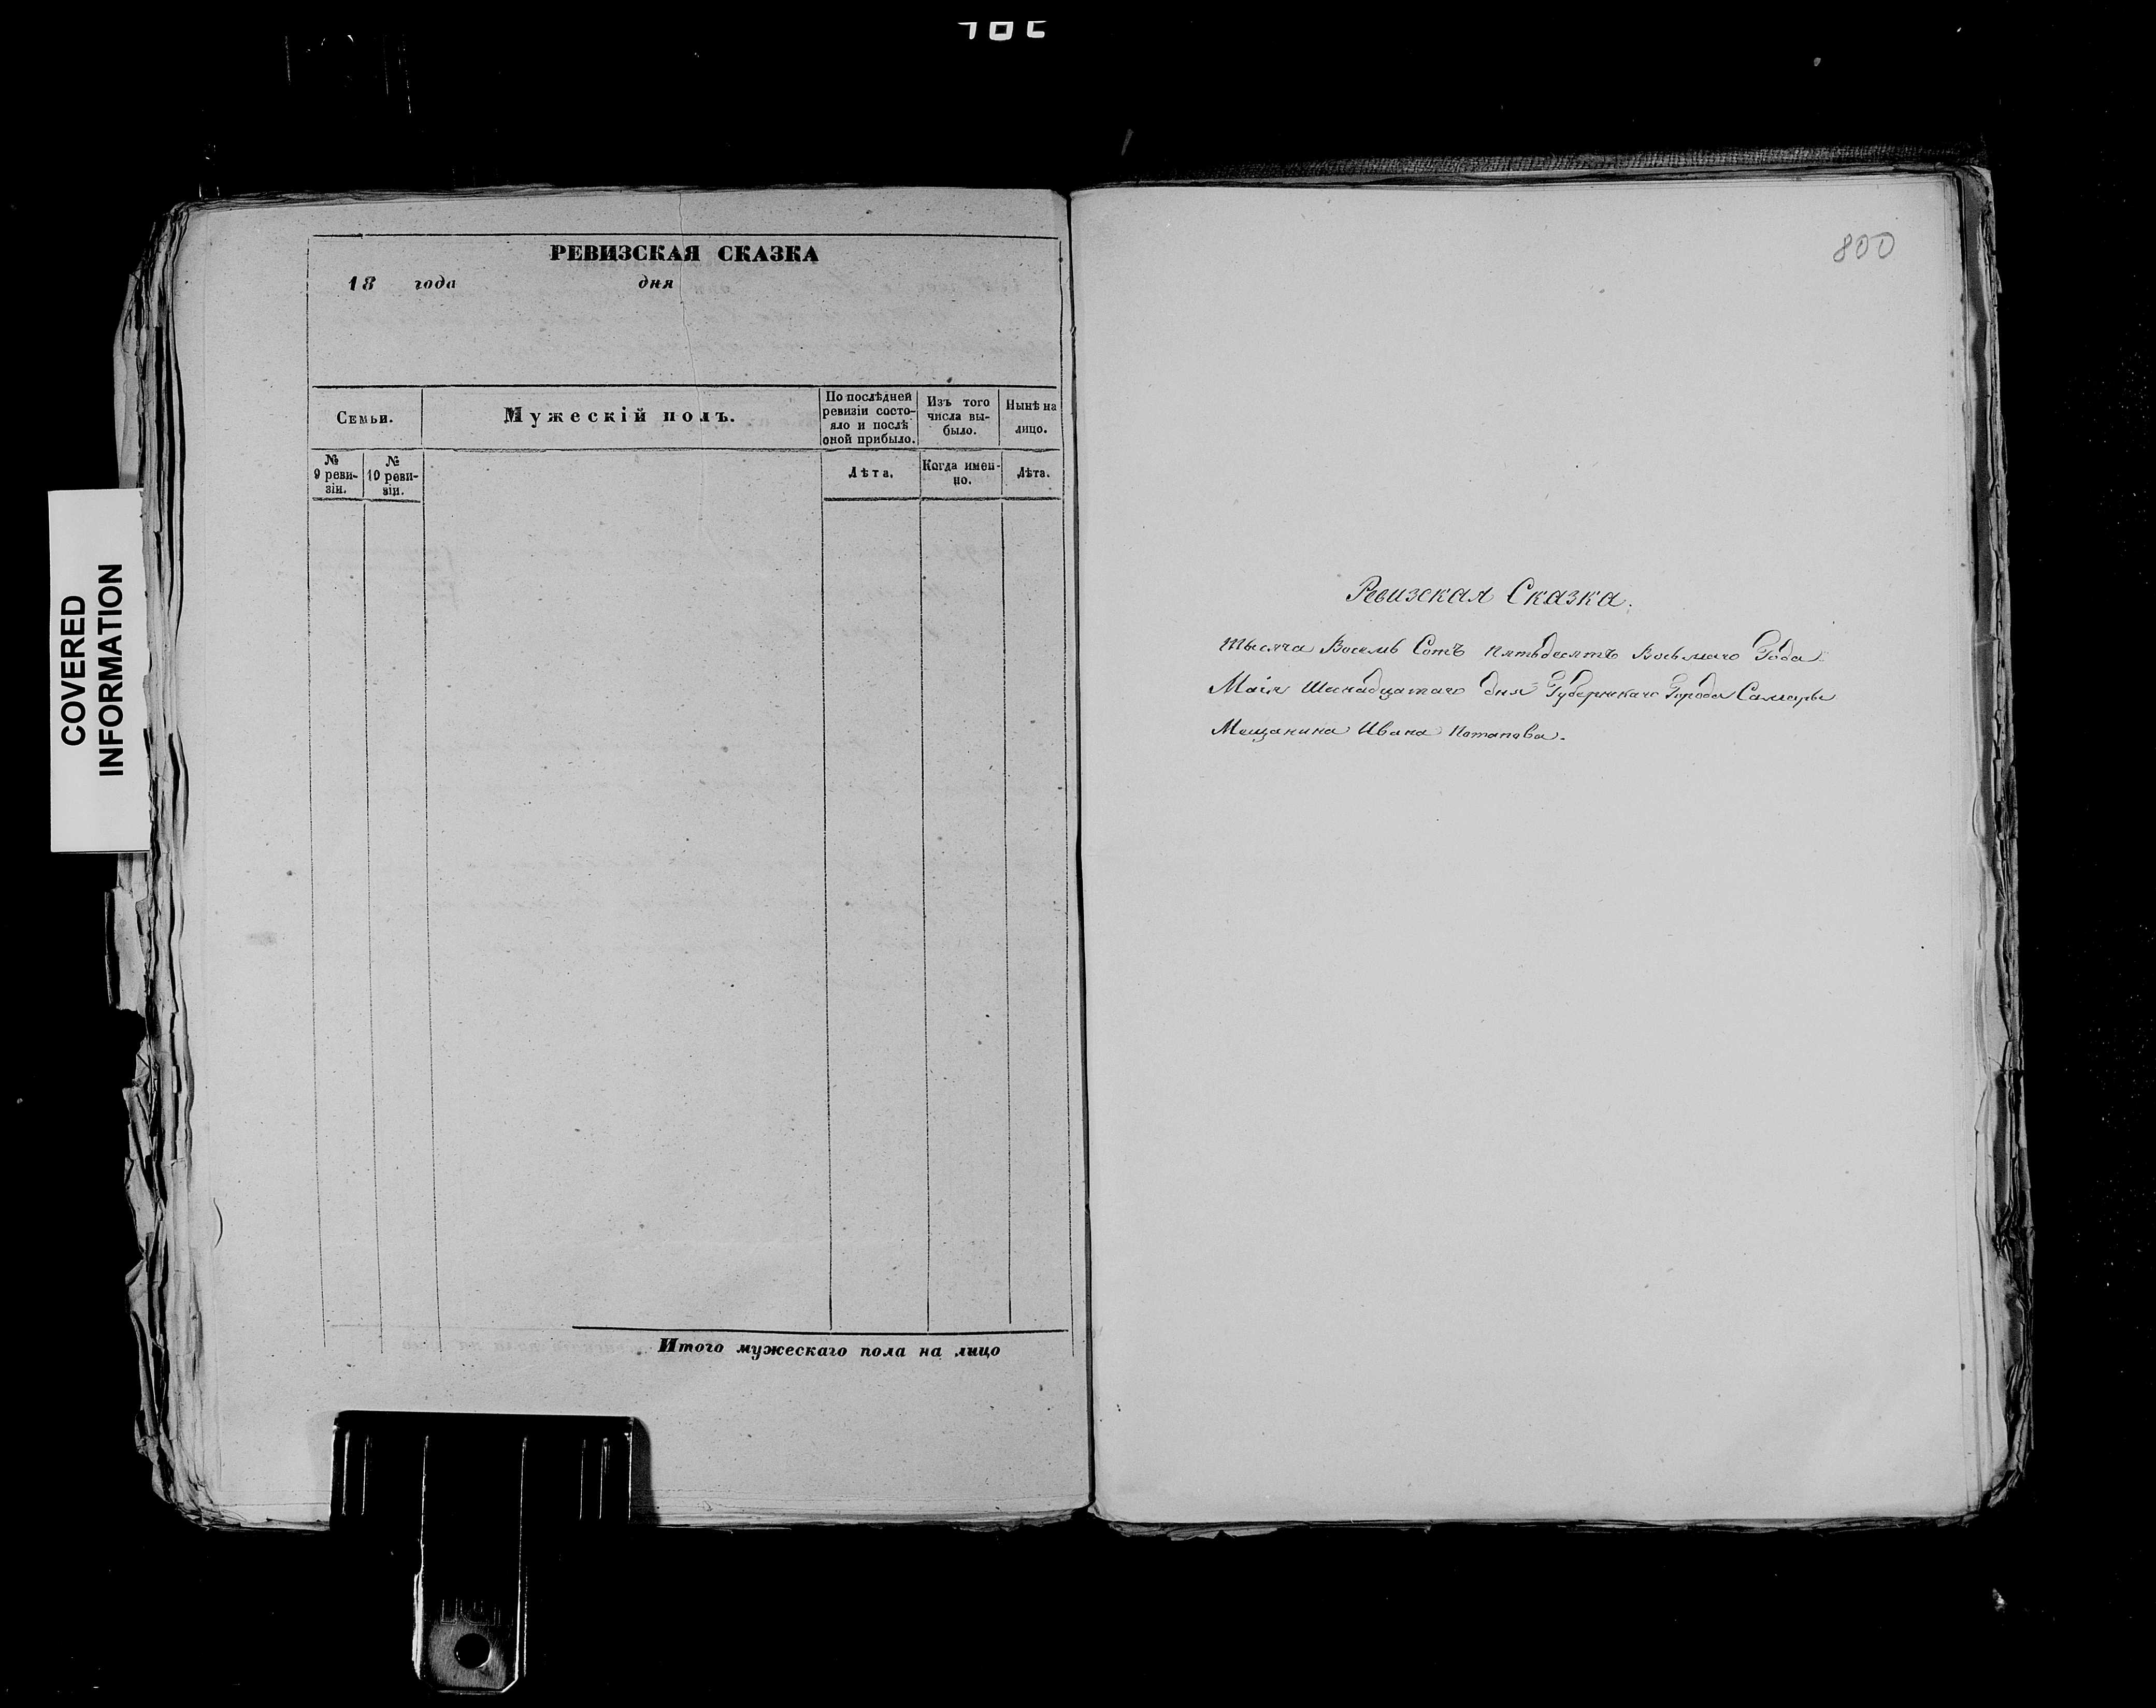 COVERED
INFORMATION
РЕВИЗСКАЯ СКАЗКА
18 года дня
Семьи.
Мужескій полъ.
По послѣдней
ревизіи состо-
яло и послѣ
оной прибыло.
Изъ того
числа вы-
было.
Нынѣ на
лицо.
№
9 реви-
зіи.
№
10 реви-
зіи.
Лѣта.
Когда имен-
но.
Лѣта.
Итого мужескаго пола на лицо
800
Ревизская Сказка.
Тысяча Восемь Сотъ пятьдесятъ Восьмаго Года
Маія Шеснадцатаго дня Губернскаго Города Самары
Мещанина Ивана Потапова.